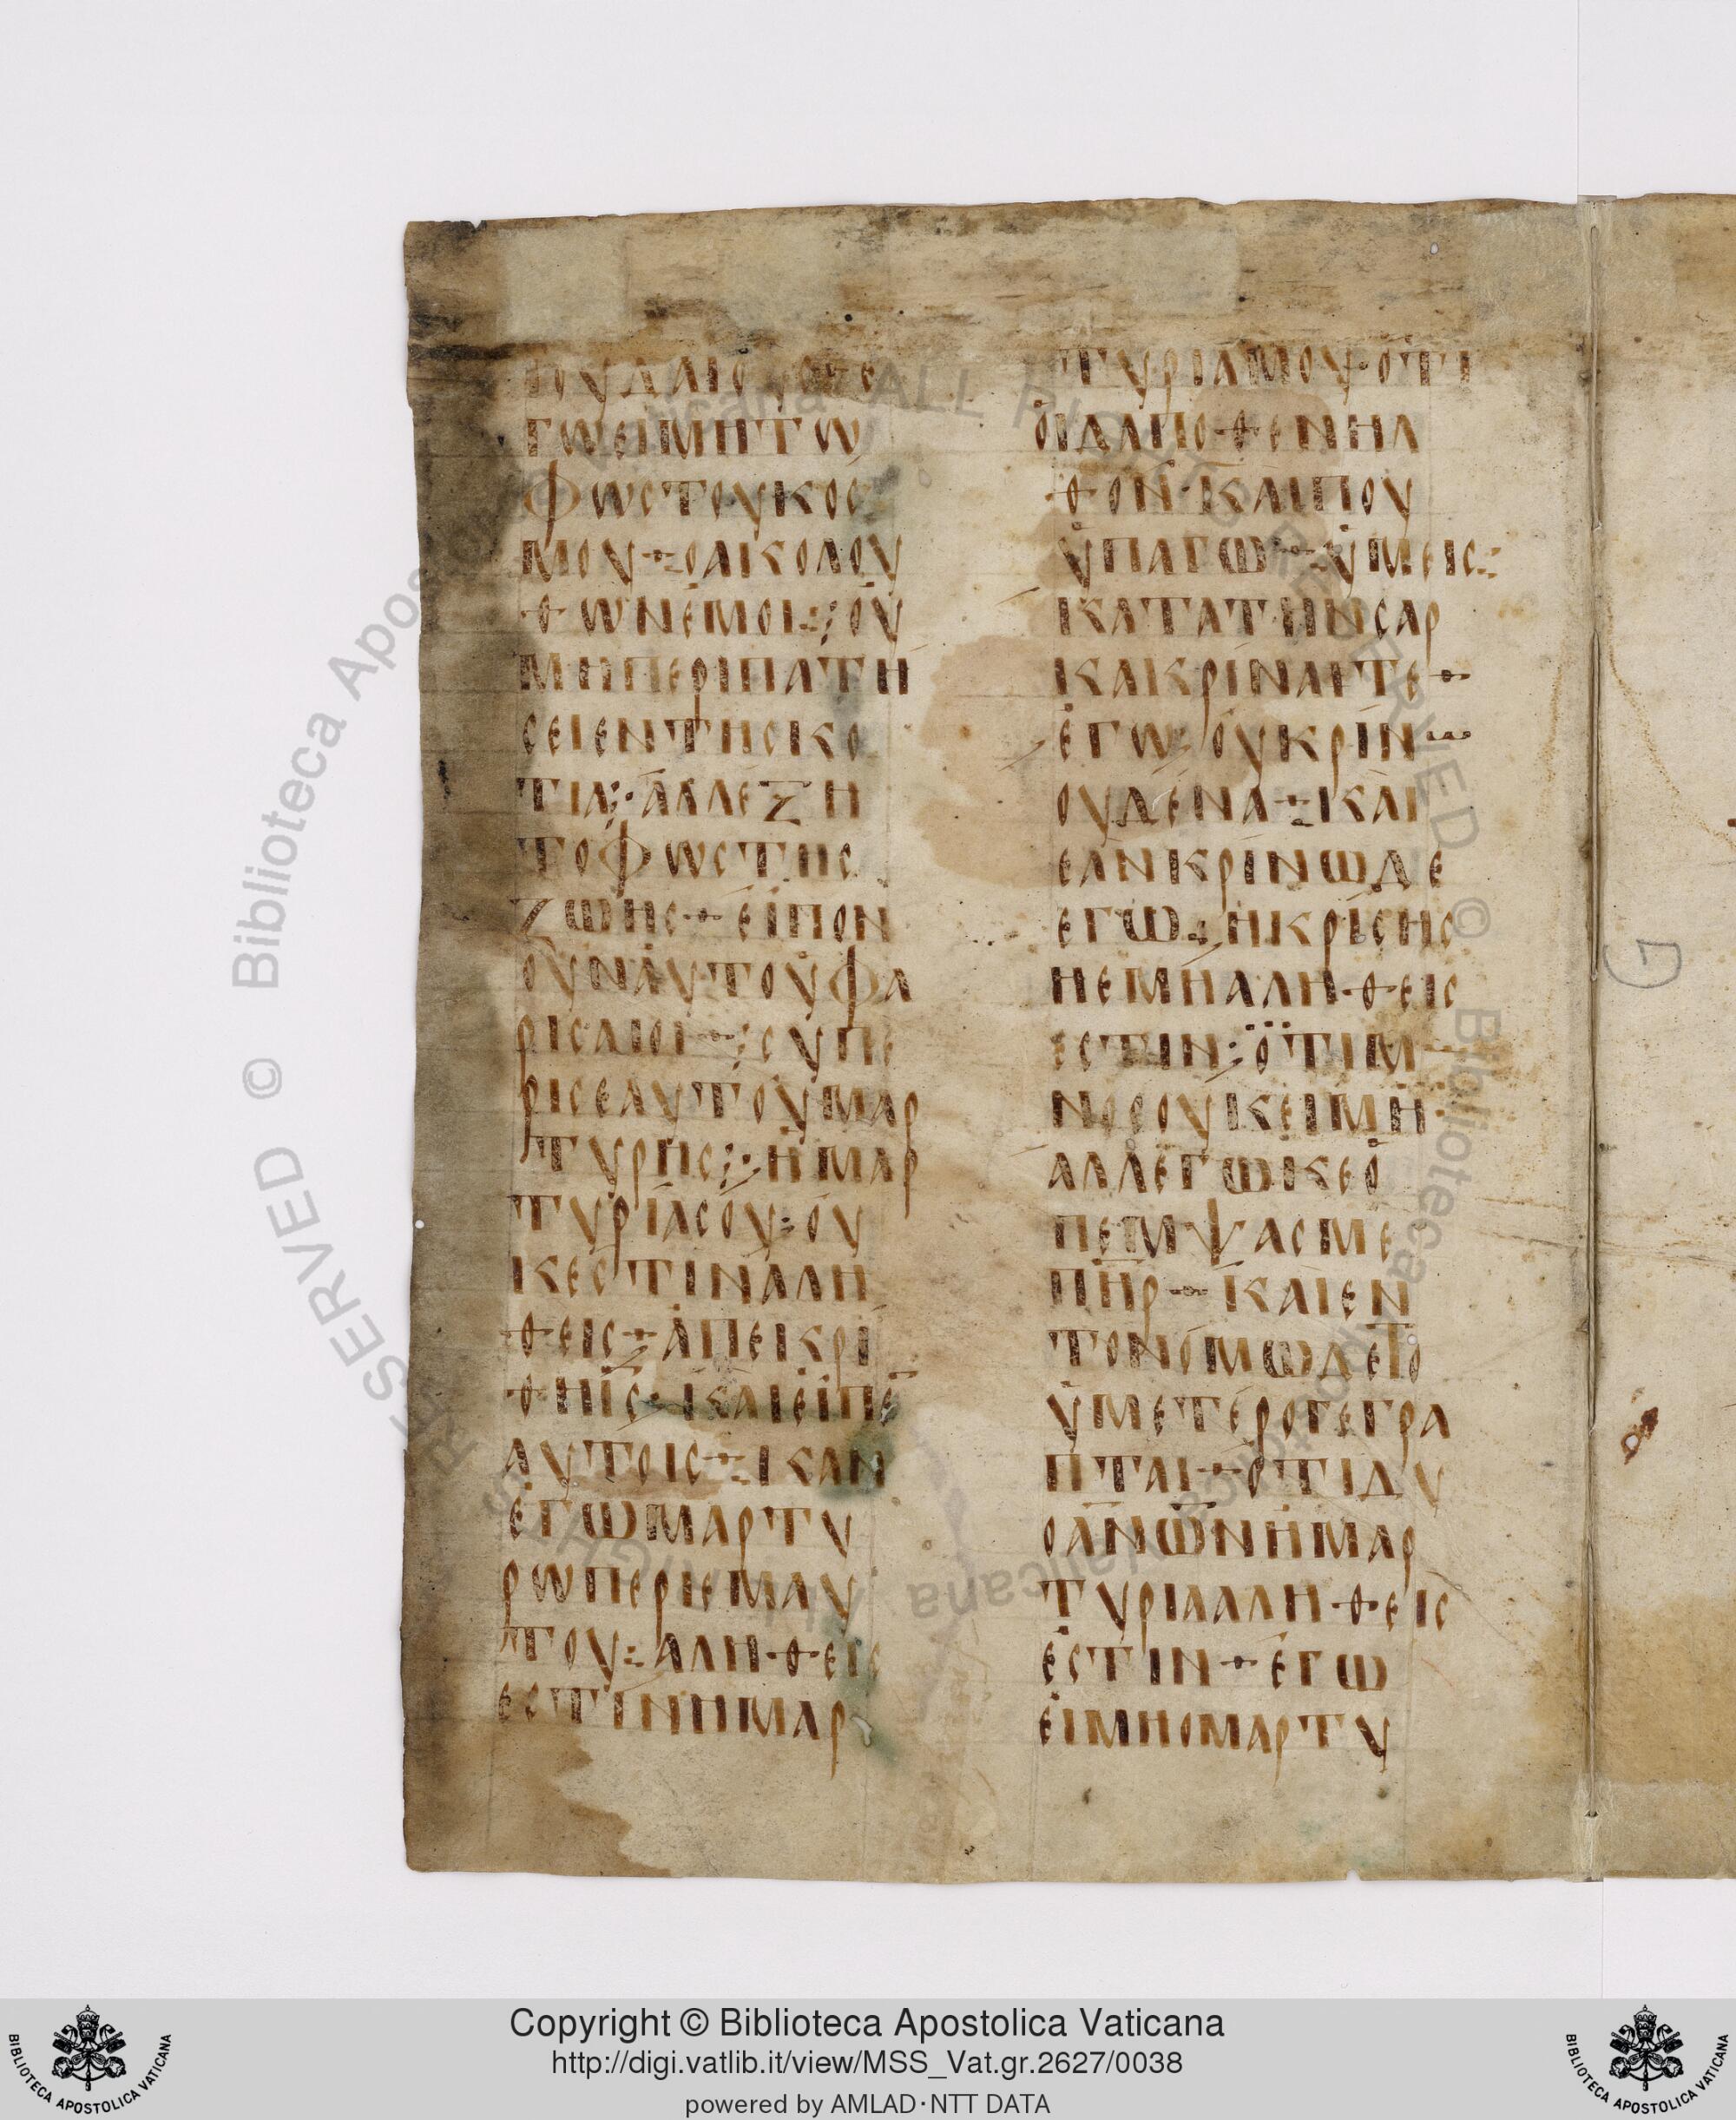 ΪΟΥΔΑΙΟ
ΓΩΕΙΜΗΤΩ
ΦΩΣΤΟΥΚΟΣ
ΜΟΥ ÷ ΟΑΙΚΟΛΟΥ
ΘΩΝΕΜΟΙ : ΟΥ
ΜΗΠΕΡΙΠΑΤΗ
ΣΕΙΕΝΤΗΣΚΟ
ΤΙΑ : ΑΛΛΕΞΗ
ΤΟΦΩΣΤΗΣ
ΖΩΗΣ ÷ ΕΙΠΟΝ
ΟΥΝΑΥΤΟΥΦΑ
ΡΙΣΑΙΟΙ ÷ ΣΥΠΕ
ΡΙΣΕΑΥΤΟΥΜΑΡ
ΤΥΡΗΣ : ΗΜΑΡ
ΤΥΡΙΑΣΟΥ : ΟΥ
ΚΕΣΤΙΝΑΛΗ
ΘΕΙΣ ÷ ΑΠΕΙΚΡΙ
ΘΗΙΣ · ΚΑΙΕΙΠΕ
ΑΥΤΟΙΣ ÷ ΚΑΝ
ΕΓΩΜΑΡΤΥ
ΡΩΠΕΡΙΕΜΑΥ
ΤΟΥ : ΑΛΗΘΕΙΣ
ΕΣΤΙΝΗΜΑΡ
ΤΥΡΙΑΜΟΥ · ΟΤΙ
ΟΙΔΑΠΟΘΕΝΗΛ
ΘΟΝ · ΚΑΙΠΟΥ
ΥΠΑΓΩ ÷ ΥΜΕΙΣ :
ΚΑΤΑΤΗΝΣΑΡ
ΚΑΚΡΙΝΑΙΤΕ ÷
ΕΓΩ : ΟΥΚΡΙΝ
ΟΥΔΕΝΑ ÷ ΚΑΙ
ΕΑΝΚΡΙΝΩΔΕ
ΕΓΩ : ΗΚΡΙΣΗΣ
ΗΕΜΗΑΛΗΘΕΙΣ
ΕΣΤΙΝ : ΟΤΙΜ
ΝΟΣΟΥΚΕΙΜΗ
ΑΛΛΕΓΩΚΕΟ
ΠΕΜΨΑΣΜΕ
ΠΗΡ ÷ ΚΑΙΕΝ
ΤΟΝΟΜΩΔΕΤΟ
ΥΜΕΤΕΡΟΓΕΓΡΑ
ΠΤΑΙ ÷ ΟΤΙΔΥ
ΟΑΝΩΝΗΜΑΡ
ΤΥΡΙΑΑΛΗΘΕΙΣ
ΕΣΤΙΝ ÷ ΕΓΩ
ΕΙΜΗΟΜΑΡΤΥ
G
ΒΙBLIOTECA APOSTOLICA VATICANA
Copyright © Biblioteca Apostolica Vaticana
http://digi.vatlib.it/view/MSS_Vat.gr.2627/0038
powered by AMLAD·NTT DATA
BIBLIOTECA APOSTOLICA VATICANA